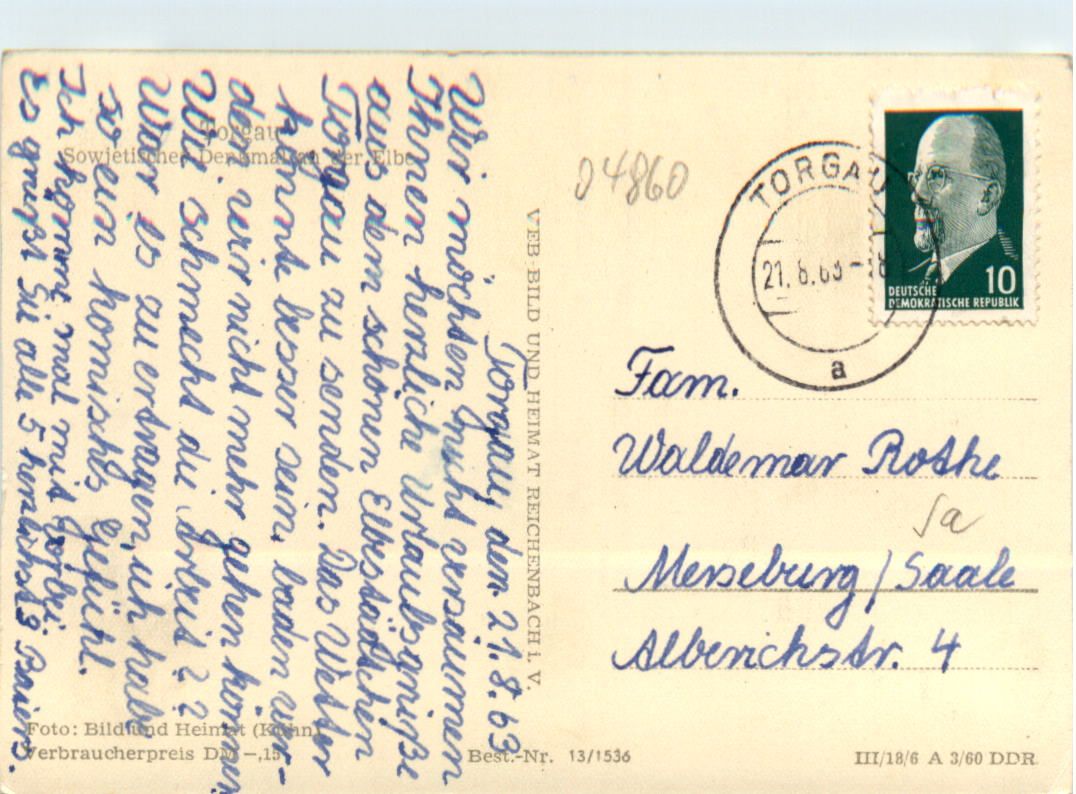 Torgau
Sowjetisches Denkmal an der Elbe
Torgau, den 21.8.63
Wir möchten nicht versäumen
Ihnen herzliche Urlaubsgrüße
aus dem schönen Elbestädtchen
Torgau zu senden. Das Wetter
könnte besser sein, baden wer-
den wir nicht mehr gehen können.
Wie schmeckt die Arbeit??
War es zu ertragen, ich habe
so ein komisches Gefühl.
Ich komme mal mit vorbei.
Es grüßt Sie alle 5 herzlichst
04860
TORGAU
21.8.63-18
a
DEUTSCHE
DEMOKRATISCHE REPUBLIK
10
VEB-BILD UND HEIMAT REICHENBACH i. V.
Fam.
Waldemar Rothe
Sa
Merseburg/Saale
Alberichstr. 4
Foto: Bild und Heimat (Kühn)
Verbraucherpreis DM -,15
Best.-Nr. 13/1536
III/18/6 A 3/60 DDR